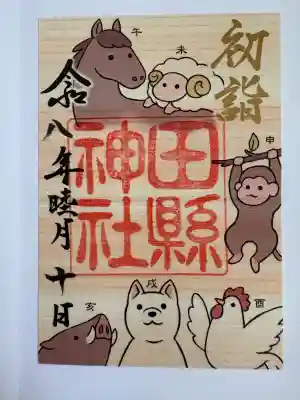 初詣
午
未
申
田縣
神社
令八年睦月十日
酉
戌
亥